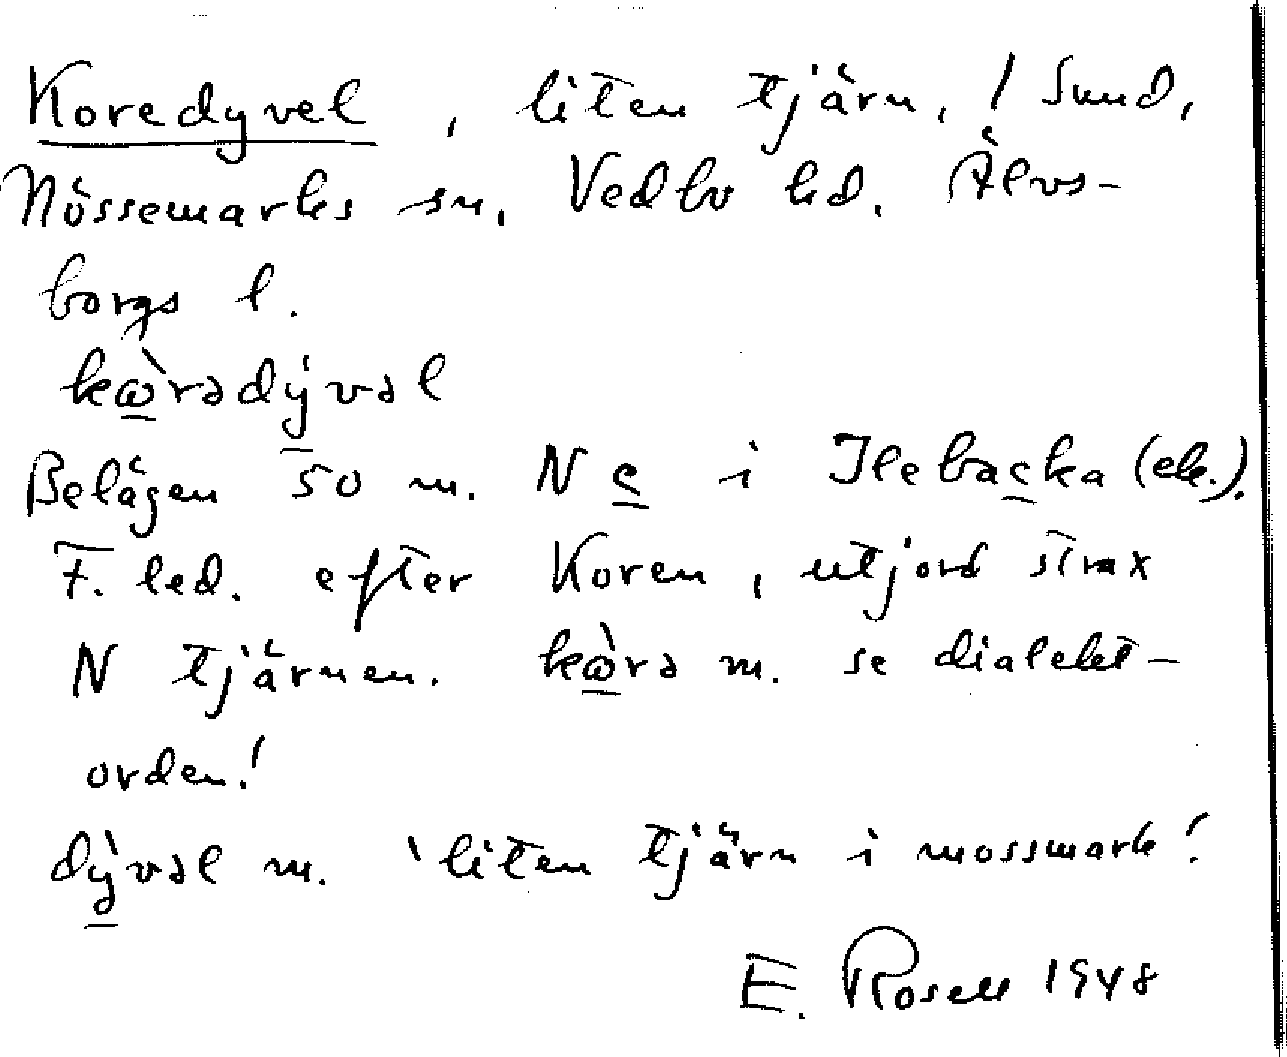 Koredyvel, liten tjärn, / Sund,
Nössemarks sn. Vedbo hd. Älvs-
borgs l.
kὼrədývəl
Belägen 50 m. N e i Ilebacka (ek.).
F. led. efter Koren, utjord strax
N tjärnen. kὼrə m. se dialekt-
orden!
dỳvəl m. 'liten tjärn i mossmark'.
E. Rosell 1948